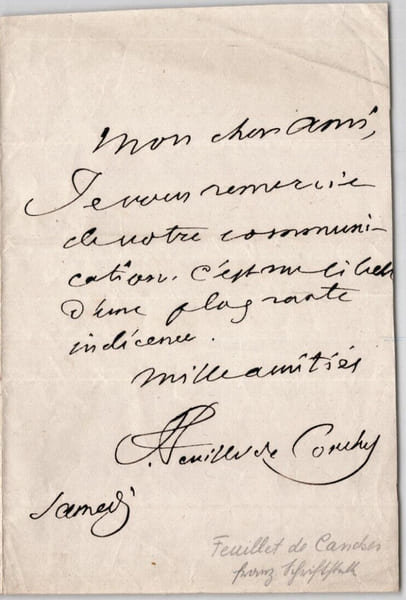 Mon cher ami,
Je vous remercie
de votre communi-
cation. c'est un libelle
d'une flagrante
indécence.
Mille amitiés
F. Feuillet de Conches
Samedi
Feuillet de Conches
franz. Schriftstell